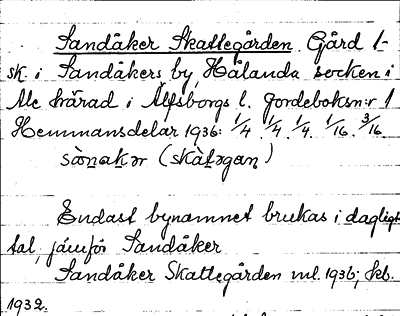 Sandåker Skattegården. Gård 1-
sk. i Sandåkers by, Hålanda socken i
Ale härad i Älfsborgs l. Jordeboksn:r 1
Hemmansdelar 1936: 1/4. 1/4. 1/4. 1/16. 3/16
sànakər (skàtəgan)
Endast bynamnet brukas i dagligt
tal, jämför Sandåker
Sandåker Skattegården ml. 1936; Jkb.
1932.